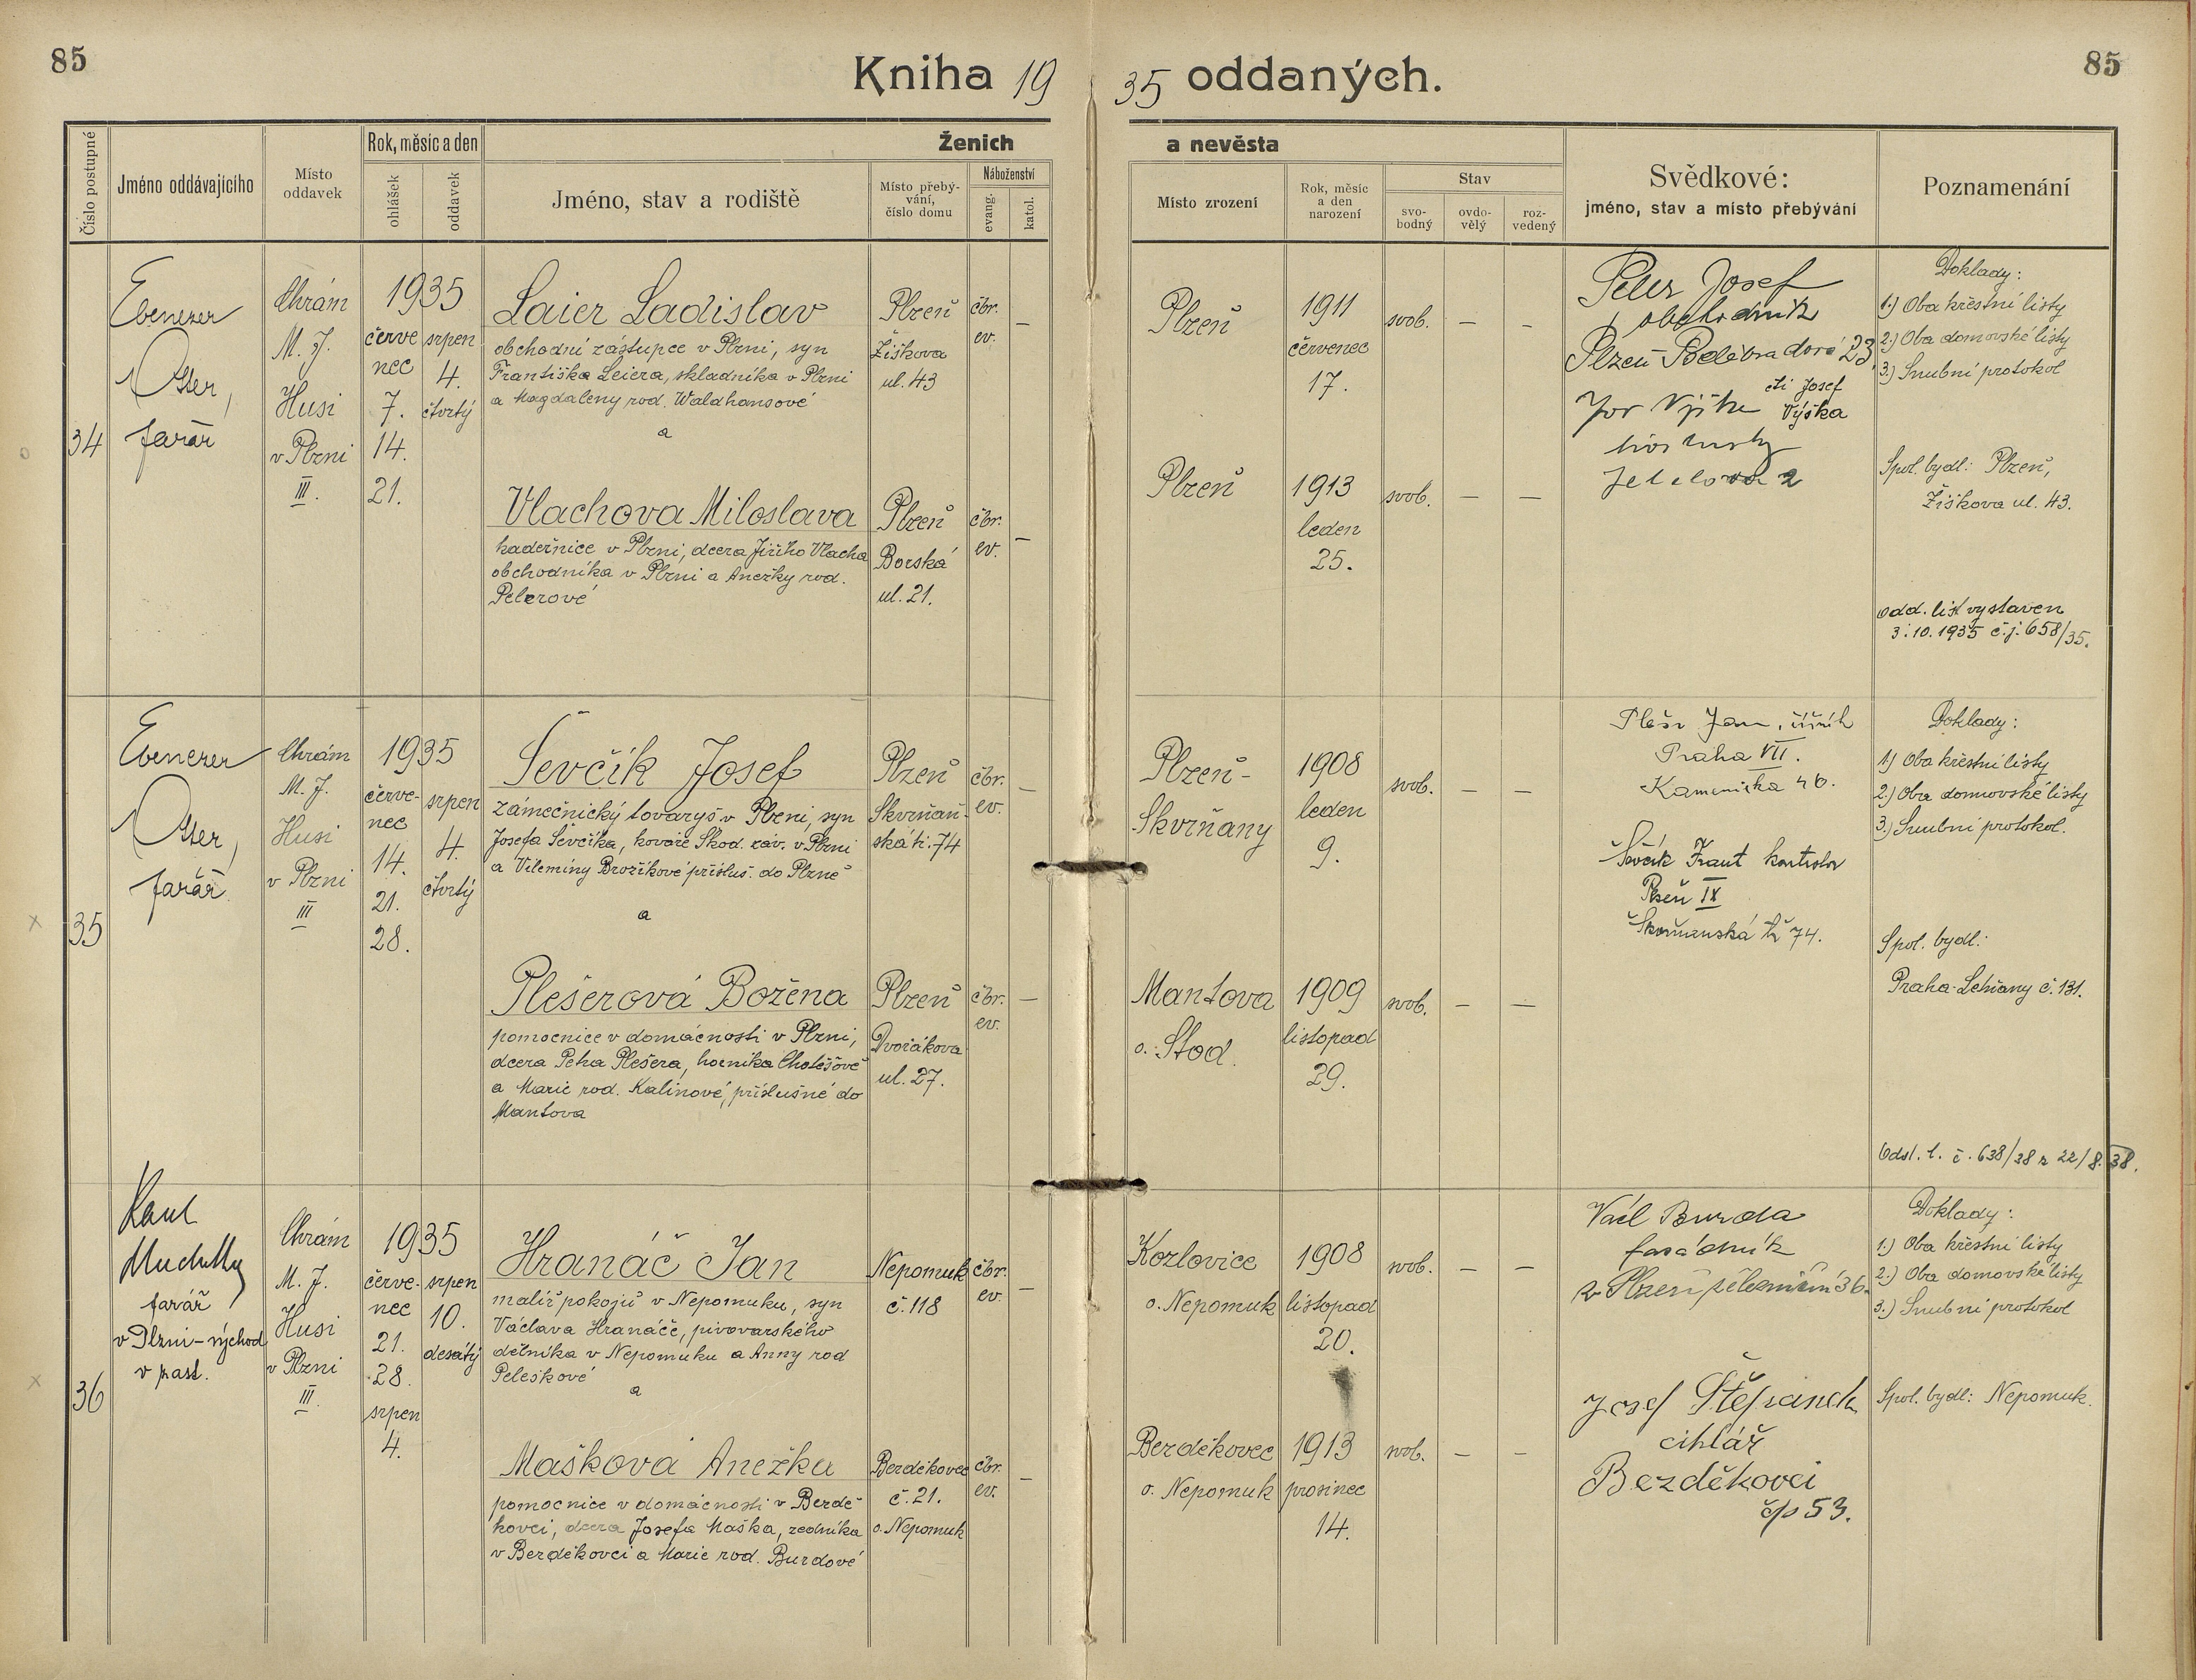 85
Kniha 1935 oddaných.
85
Číslo postupné
Jméno oddávajícího
Místo oddavek
Rok, měsíc a den
ohlášek
oddavek
Ženich
a nevěsta
Jméno, stav a rodiště
Místo přebý-
vání,
číslo domu
Náboženství
evang.
katol.
Místo zrození
Rok, měsíc
a den
narození
Stav
svo-
bodný
ovdo-
vělý
roz-
vedený
Svědkové:
jméno, stav a místo přebývání
Poznamenání
34
Ebenezer
Otter,
farář
Chrám
M. J.
Husi
v Plzni
III.
1935
červe
nec
7.
14.
21.
srpen
4.
čtvrtý
Laier Ladislav
obchodní zástupce v Plzni, syn
Františka Leiera, skladníka v Plzni
a Magdaleny rod. Waldhansové
a
Plzeň
Žižkova
ul. 43
čbr.
ev.
–
Plzeň
1911
červenec
17.
svob.
–
–
Vlachova Miloslava
kadeřnice v Plzni, dcera Jiřího Vlacha
obchodníka v Plzni a Anežky rod.
Pelerové
Plzeň
Borská
ul. 21.
čbr.
ev.
–
Plzeň
1913
leden
25.
svob.
–
–
Peler Josef
obchodník
Plzeň Poděbradova 23
čti Josef
Výška
2
Doklady:
1.) Oba křestní listy
2.) Oba domovské listy
3.) Snubní protokol
Spol. bydl: Plzeň,
Žižkova ul. 43.
Odd. list vystaven
3.10.1935 č.j. 658/35.
35
Ebenezer
Otter,
farář
Chrám
M. J.
Husi
v Plzni
III
1935
červe-
nec
14.
21.
28.
srpen
4.
čtvrtý
Ševčík Josef
zámečnický tovaryš v Plzni, syn
Josefa Ševčíka, kováře Škod. záv. v Plzni
a Vilemíny Brožíkové přísluš. do Plzně
a
Plzeň
Skvrňan-
ská tř. 74
čbr.
ev.
–
Plzeň-
Skvrňany
1908
leden
9.
svob.
–
–
Plešerová Božena
pomocnice v domácnosti v Plzni,
dcera Petra Plešera, horníka Chotěšově
a Marie rod. Kalinové, příslušné do
Mantova
Plzeň
Dvořákova
ul. 27.
čbr.
ev.
–
Mantova
o. Stod.
1909
listopad
29.
svob.
–
–
Jan, číšník
Praha VII.
Kamenická 46.
Ševčík Frant kontrolor
Plzeň IX
Škvrňanská tř 74.
Doklady:
1.) Oba křestní listy
2.) Oba domovské listy
3.) Snubní protokol.
Spol. bydl:
Praha-Letňany č. 131.
Odsl. l. č. 638/38 z 22/8. 38.
36
farář
v Plzni-východ
v zast.
Chrám
M. J.
Husi
v Plzni
III.
1935
červe-
nec
21.
28.
srpen
4.
srpen
10.
desátý
Hranáč Jan
malíř pokojů v Nepomuku, syn
Václava Hranáče, pivovarského
dělníka v Nepomuku a Anny rod
Peleškové
a
Nepomuk
č. 118
čbr.
ev.
–
Kozlovice
o. Nepomuk
1908
listopad
20.
svob.
–
–
Mašková Anežka
pomocnice v domácnosti v Bezdě-
kovci, dcera Josefa Maška, zedníka
v Bezděkovci a Marie rod. Burdové
Bezděkovec
č. 21.
o. Nepomuk
čbr.
ev.
–
Bezděkovec
o. Nepomuk
1913
prosinec
14.
svob.
–
–
Václ Burda
fasádník
v Plzeň železniční 36.
Josef Štěpánek
cihlář
Bezděkovci
čp 53.
Doklady:
1.) Oba křestní listy
2.) Oba domovské listy
3.) Snubní protokol
Spol. bydl: Nepomuk.